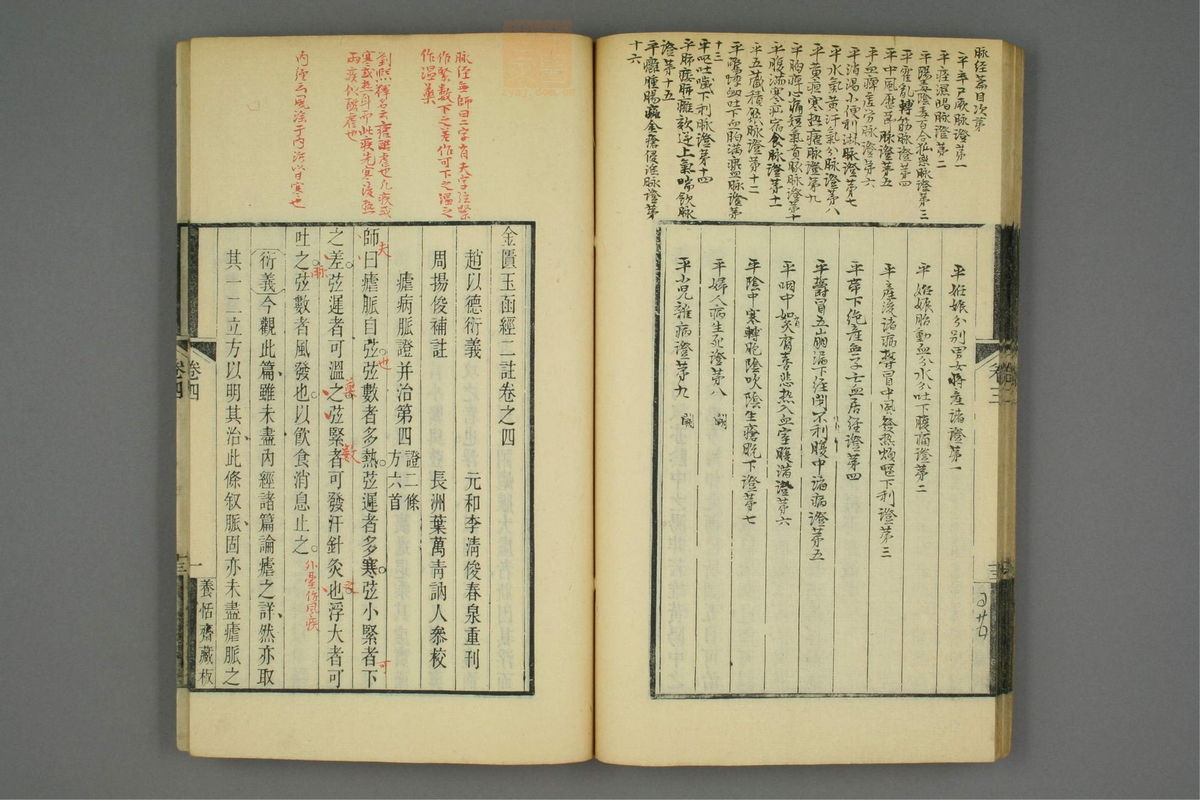 脉经篇目次第
平卒尸厥脉證第一
平痓濕暍脉證第二
平陽毒陰毒百合狐惑脉證第三
平霍亂轉筋脉證第四
平中風歷節脉證第五
平血痺虛勞脉證第六
平消渴小便利淋脉證第七
平水氣黃汗氣分脉證第八
平黃疸寒熱瘧脉證第九
平胸痺心痛短氣賁豚脉證第十
平腹滿寒疝宿食脉證第十一
平五藏積聚脉證第十二
平驚悸衄吐下血胸滿瘀血脉證第
十三
平嘔吐噦下利脉證第十四
平肺痿肺癰欬逆上氣喘飲脉
證第十五
平癰腫腸癰金瘡侵淫脉證第
十六
平妊娠分別男女將產諸證第一
平妊娠胎動血分水分吐下腹痛證第二
平產後諸病鬱冒中風發熱煩嘔下利證第三
平帶下絕產無子亡血居經證第四
平鬱冒五崩漏下經閉不利腹中諸病證第五
平咽中如有炙臠喜悲熱入血室腹滿證第六
平陰中寒轉胞陰吹陰生瘡脫下證第七
平婦人病生死證第八 闕
平小兒雜病證第九 闕
卷三
脉经無師曰二字有夫字注緊
作緊數下之差作可下之溫之
作溫藥
劉熙釋名云瘧酷虐也凡疾或
寒或熱耳而此疾先寒後熱
兩疾似酷虐也
內經云風淫于內治以甘寒也
金匱玉函經二註卷之四
趙以德衍義 元和李清俊春泉重刊
周揚俊補註 長洲葉萬青訥人參校
瘧病脈證并治第四 證二條 方六首
師曰瘧脈自弦弦數者多熱弦遲者多寒弦小緊者下
之差弦遲者可溫之弦緊者可發汗針灸也浮大者可
吐之弦數者風發也以飲食消息止之
夫
也
可
脉
藥
數
外臺作風疾
衍義今觀此篇雖未盡內經諸篇論瘧之詳然亦取
其一二立方以明其治此條叙脈固亦未盡瘧脈之
卷四
一
養恬齋藏板